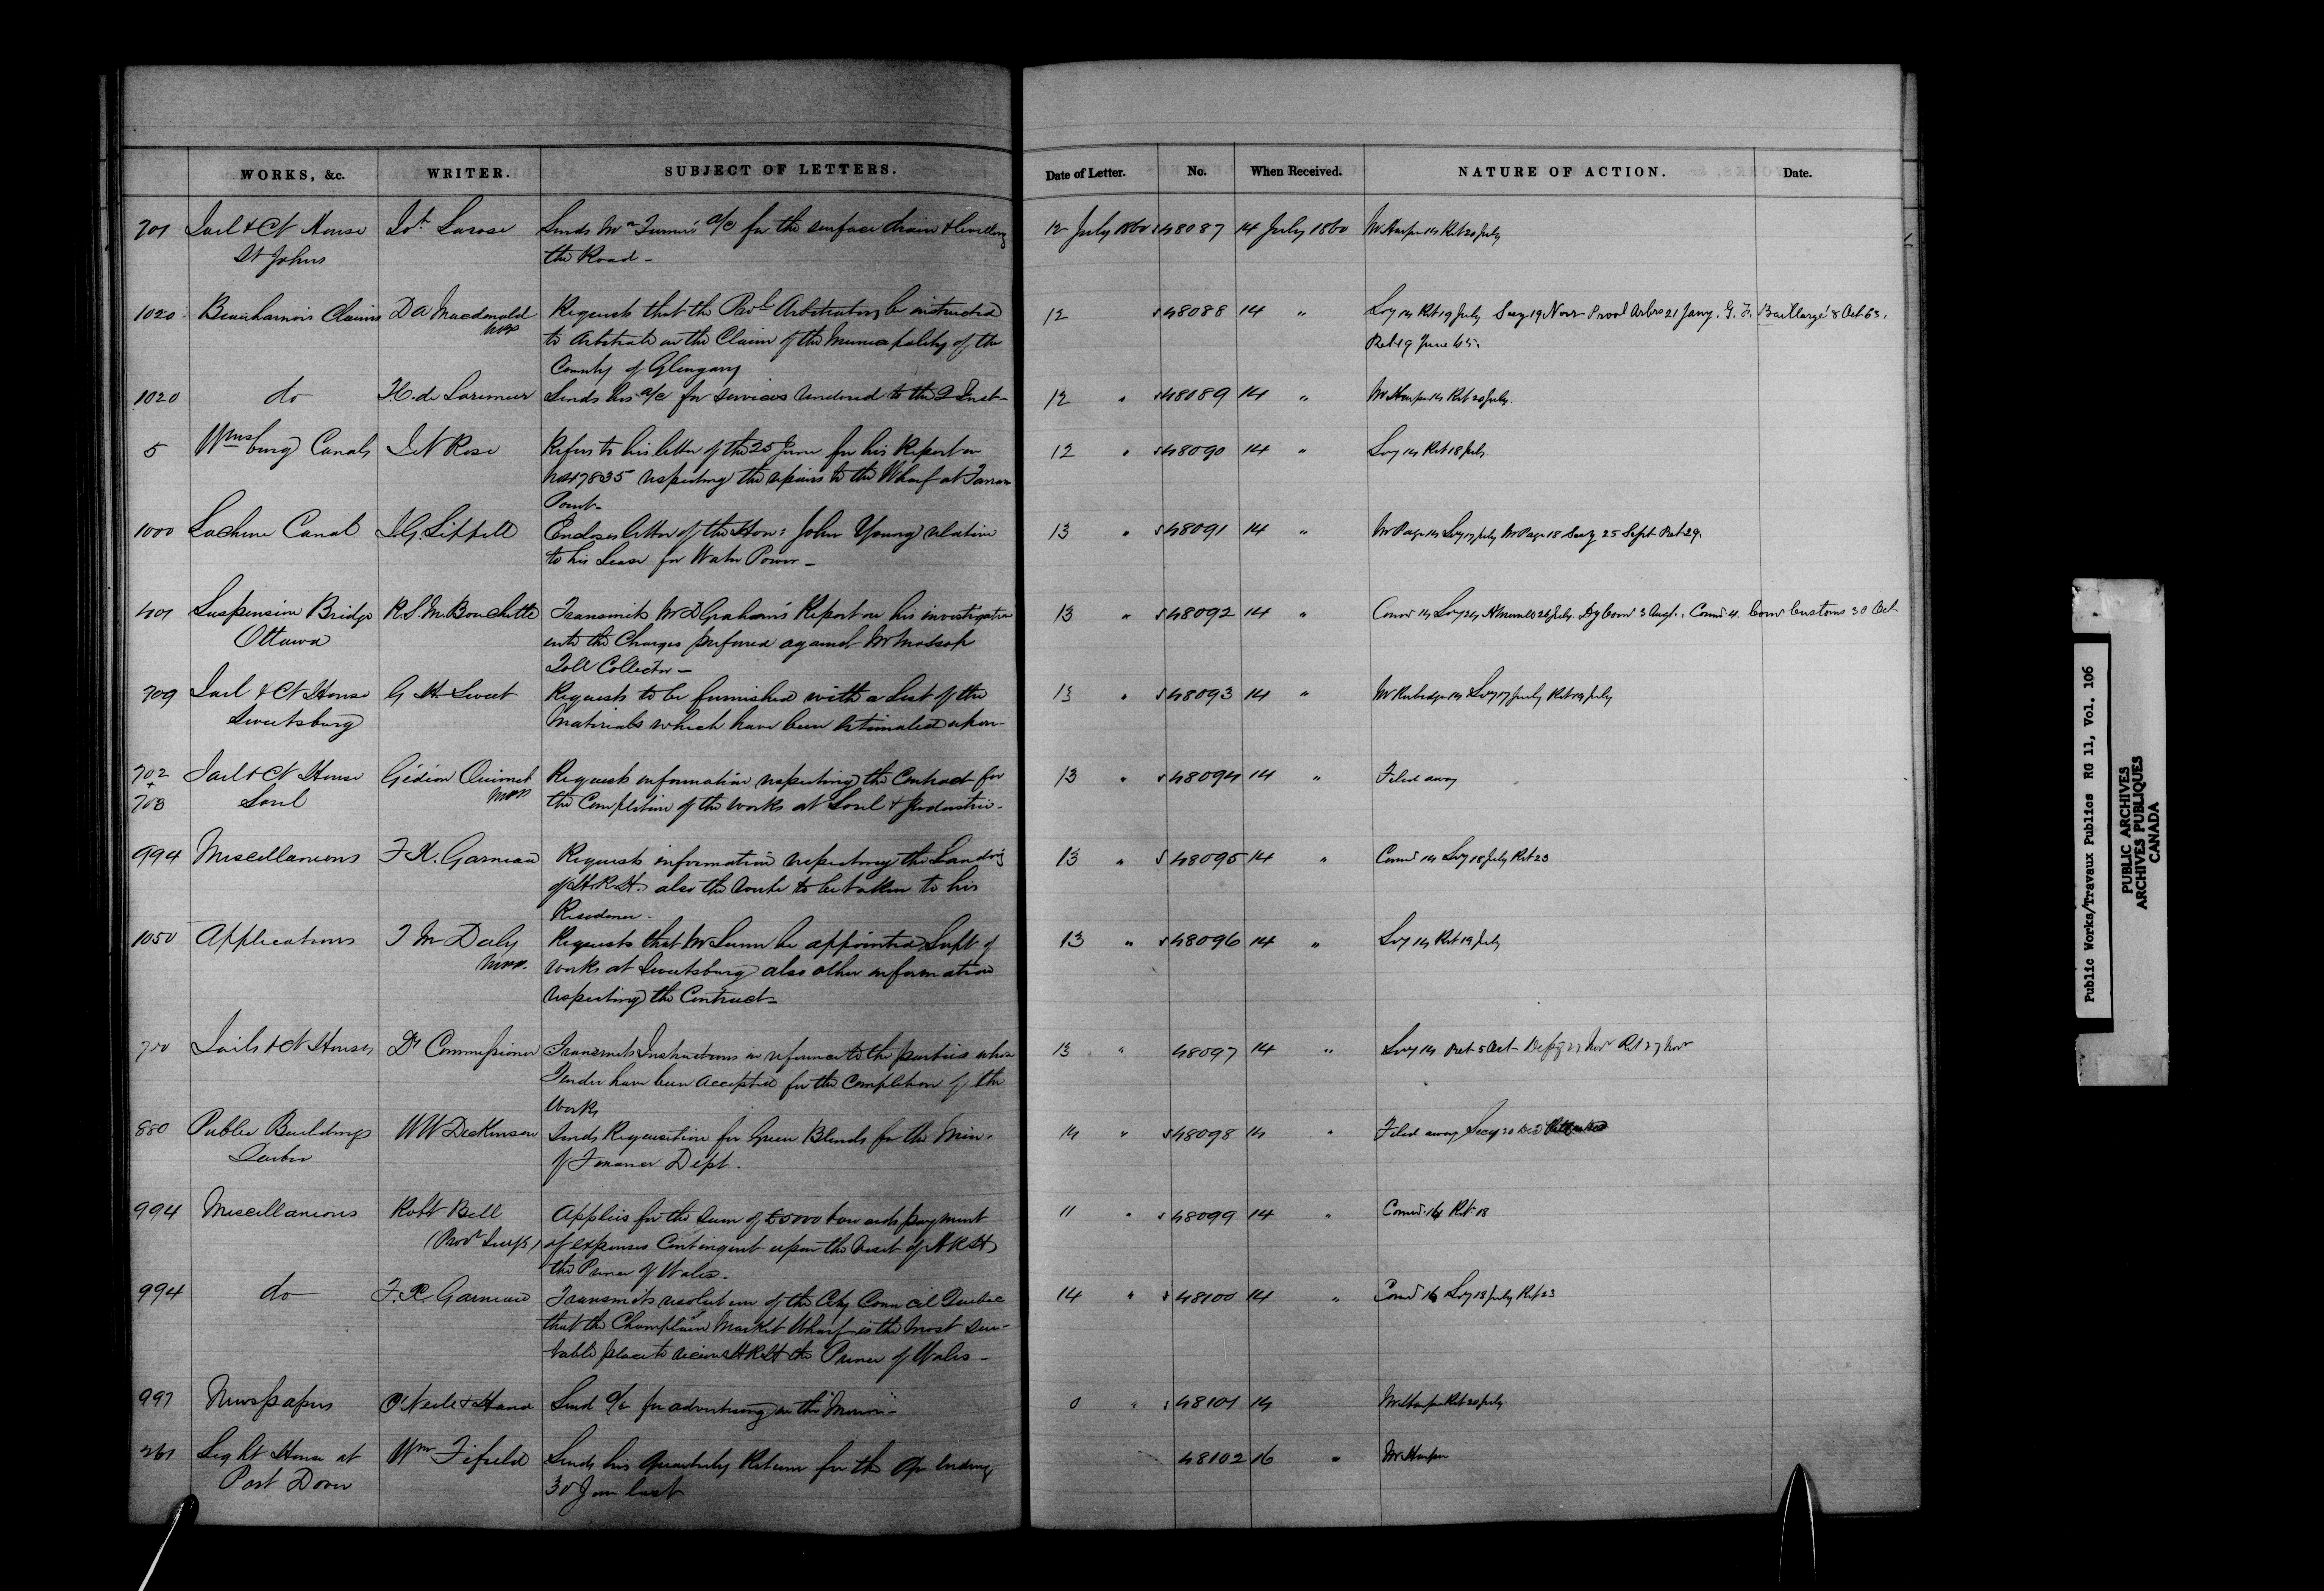 WORKS, &c. WRITER. SUBJECT OF LETTERS. Date of Letter. No. When Received. NATURE OF ACTION. Date.
701 Jail & Ct House Larose Sends Mr Turner's a/c for the surface drain & levelling 12 July 1860 48087 14 July 1860 Mr Harper 14 Ret 20 July
St Johns the Road -
1020 Beauharnois Claims D A Macdonald Requests that the Provl Arbitrators be instructed 12 48088 14 " Secy 14 Ret 19 July Secy 19 Novr Provl Arbrs 21 Jany. G. F. Baillargé 8 Oct 63.
MPP to Arbitrate on the Claim of the Municipality of the Ret 19 June 65.
County of Glengary
1020 do de Lorimier Sends his a/c for services rendered to the 2 Inst- 12 " 48089 14 " Mr Harper 14 Ret 20 July.
5 Wmsburg Canals I N Rose Refers to his letter of the 25 June for his Report on 12 " 48090 14 " Secy 14 Ret 18 July
No 47835 respecting the repairs to the Wharf at
Point-
1000 Lachine Canal J.G. Sippell Encloses letter of the Hon: John Young relative 13 " 48091 14 " Mr Page 14 Secy 17 July Mr Page 18 Secy 25 Sept Ret 29.
to his Lease for Water Power -
401 Suspension Bridge R.S.M. Bouchette Transmits Mr D Graham's Report on his investigation 13 " 48092 14 " Comr 14 Secy 24 26 July. Dy Comr 3 Augt. Comr 4. Comr Customs 30 Oct-
Ottawa into the Charges preferred against Mr Mossop
Toll Collector -
709 Jail & Ct House G H Sweet Requests to be furnished with a List of the 13 " 48093 14 " Mr Rubidge 14 Secy 17 July Ret 19 July
Sweetsburg Materials which have been Estimated upon-
702 Jail & Ct House Gédéon Ouimet Requests information respecting the Contract for 13 " 48094 14 " Filed away
+
703 Sorel MPP the Completion of the works at Sorel & Industrie-
994 Miscellaneous F.X. Garneau Requests information respecting the Landing 13 " 48095 14 " Comr 14 Secy 18 July Ret 23
of H.R.H. also the route to be taken to his
Residence -
1050 Applications T M Daly Requests that Mr be appointed Supt of 13 " 48096 14 " Secy 14 Ret 19 July
MPP. Works at Sweetsburg also other information
respecting the Contract-
700 Jails & Ct Houses Dy Commissioner Transmits Instructions in reference to the parties whose 13 " 48097 14 " Secy 14 Ret 5 Oct- Depy 27 Novr Ret 27 Novr
Tender have been accepted for the Completion of the
Works
880 Public Buildings W W Dickinson Sends Requisition for Green Blinds for the Min. 14 " 48098 14 " Filed away Secy 20 Dec
Quebec of Finance Dept.
994 Miscellaneous Robt Bell Applies for the sum of £5000 towards payment 11 " 48099 14 " Comr 16 Ret 18
(Provl Secy) of expenses Contingent upon the Visit of H R H
the Prince of Wales -
994 do F.X. Garneau Transmits resolution of the City Council Quebec 14 " 48100 14 " Comr 16 Secy 18 July Ret 23
that the Champlain Market Wharf is the most sui-
table place to receive H R H the Prince of Wales -
997 Newspapers O'Neile & Send a/c for advertising in the " " 48101 14 Mr Harper Ret 20 July
261 Light House at Wm Fifield Sends his Quarterly Return for the Qr ending 48102 16 " Mr Harper
Port Dover 30 June last
Public Works/Travaux Publics RG 11, Vol. 106
PUBLIC ARCHIVES
ARCHIVES PUBLIQUES
CANADA